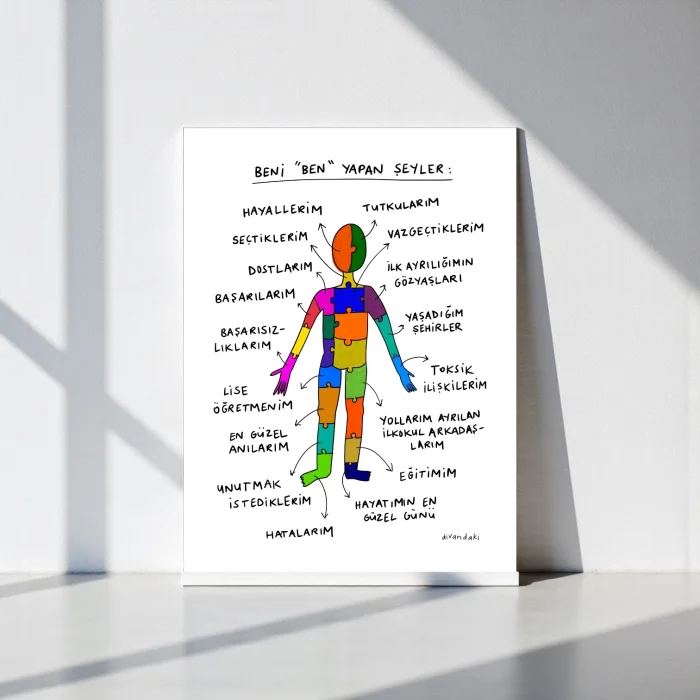 BENİ "BEN" YAPAN ŞEYLER:
HAYALLERİM
TUTKULARIM
SEÇTİKLERİM
VAZGEÇTİKLERİM
DOSTLARIM
İLK AYRILIĞIMIN
GÖZYAŞLARI
BAŞARILARIM
YAŞADIĞIM
ŞEHİRLER
BAŞARISIZ-
LIKLARIM
TOKSİK
İLİŞKİLERİM
LİSE
ÖĞRETMENİM
YOLLARIM AYRILAN
İLKOKUL ARKADAŞ-
LARIM
EN GÜZEL
ANILARIM
EĞİTİMİM
UNUTMAK
İSTEDİKLERİM
HAYATIMIN EN
GÜZEL GÜNÜ
HATALARIM
divandaki